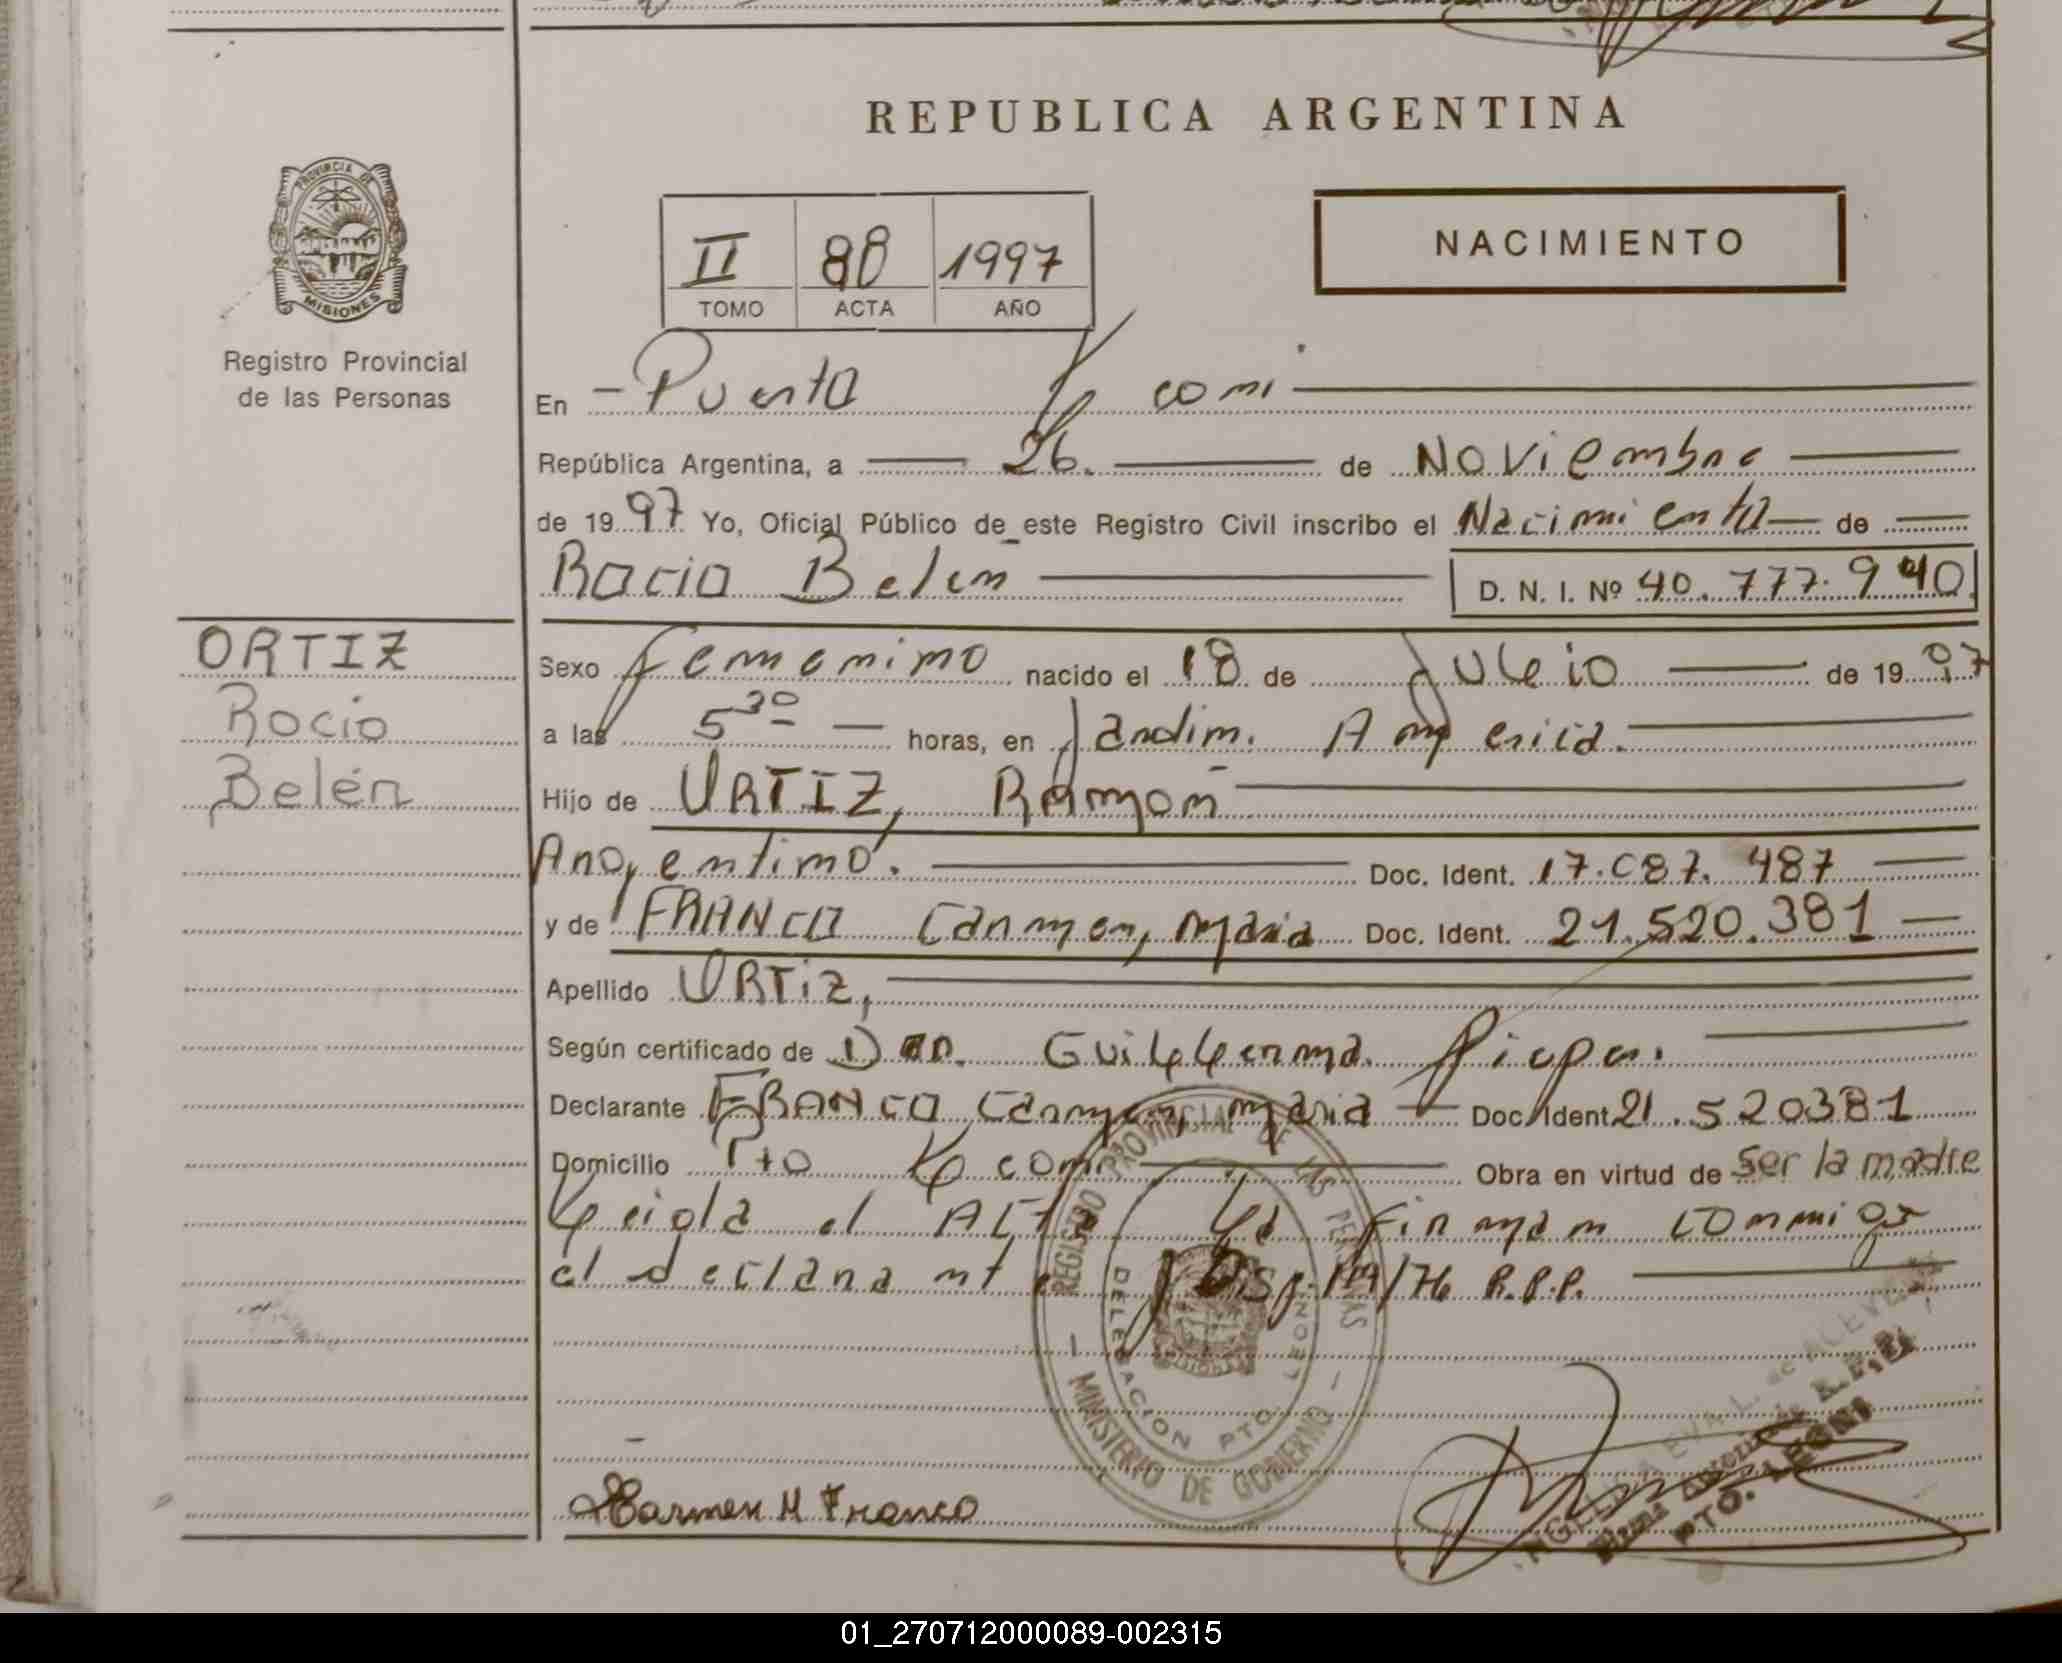 REPUBLICA ARGENTINA
NACIMIENTO
II 80 1997
TOMO ACTA AÑO
PROVINCIA DE
MISIONES
Registro Provincial
de las Personas
En - Puerto Leoni
República Argentina, a 26. de Noviembre
de 1997 Yo, Oficial Público de este Registro Civil inscribo el Nacimiento de
Rocio Belen D. N. I. Nº 40.777.940
ORTIZ
Rocio
Belén
Sexo femenino nacido el 18 de Julio de 1997
a las 5 30 horas, en Jardin America.
Hijo de ORTIZ, Ramon
Argentino. Doc. Ident. 17.087.487
y de FRANCO Carmen, Maria Doc. Ident. 21.520.381
Apellido ORTiz,
Según certificado de Guillermo
Declarante FRANCO Carmen, Maria Doc. Ident. 21.520381
Domicilio Pto Leoni Obra en virtud de Ser la madre
Leida el Acta La Firman conmigo
el declarante Disp. /76 R.P.P.
REGISTRO PROVINCIAL DE LAS PERSONAS
DELEGACION PTO. LEONI
MINISTERIO DE GOBIERNO
Carmen M Franco
PTO. LEONI
01_270712000089-002315